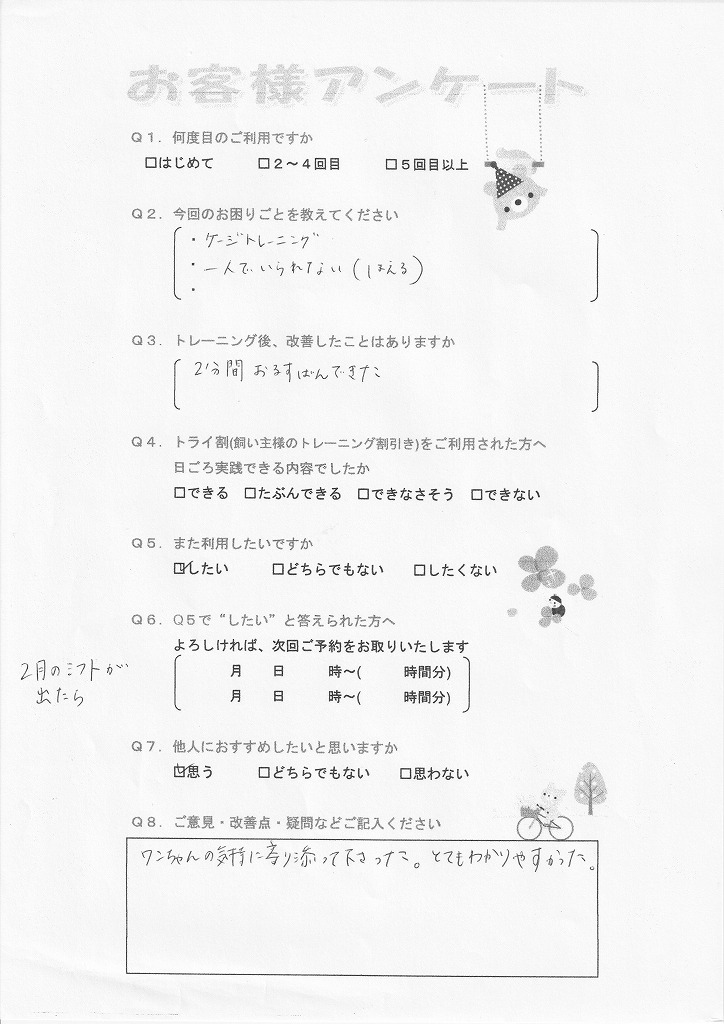 お客様アンケート
Q1．何度目のご利用ですか
□はじめて　□2～4回目　□5回目以上
Q2．今回のお困りごとを教えてください
・ケージトレーニング
・一人でいられない（ほえる）
・
Q3．トレーニング後、改善したことはありますか
2分間 おるすばんできた
Q4．トライ割(飼い主様のトレーニング割引き)をご利用された方へ
日ごろ実践できる内容でしたか
□できる　□たぶんできる　□できなさそう　□できない
Q5．また利用したいですか
☑したい　□どちらでもない　□したくない
Q6．Q5で“したい”と答えられた方へ
よろしければ、次回ご予約をお取りいたします
2月のシフトが
出たら
月　日　時～(　時間分)
月　日　時～(　時間分)
Q7．他人におすすめしたいと思いますか
☑思う　□どちらでもない　□思わない
Q8．ご意見・改善点・疑問などご記入ください
ワンちゃんの気持に寄り添って下さった。とてもわかりやすかった。